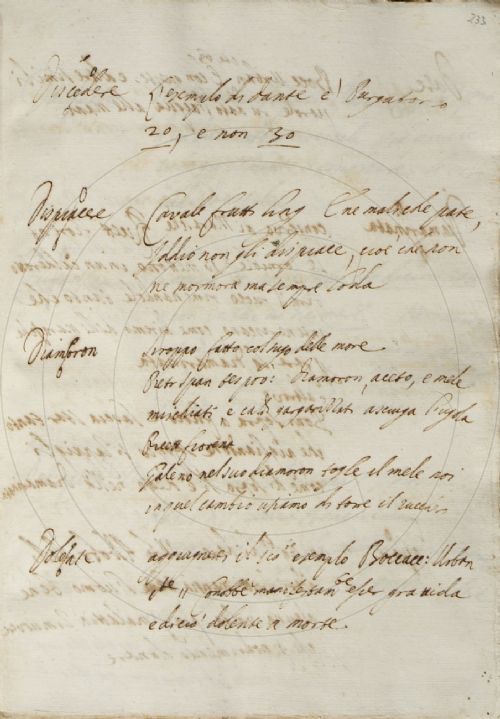 233
Discedere L'esemplo di Dante è Purgator
20, e non 30
Dispiacere Cavalc. frutti ling. che mal che pate,
Iddio non gli dispiace, cioè che non
ne mormora ma sempre loda
Diamoron siroppo fatto col sugo delle more
Pietr Span tes pov: Diamoron, aceto, e mele
mischiati, e gargarizzati asciuga
Galeno nel suo diamoron toglie il mele noi
in quel cambio usiamo di torre il
Dolente il esemplo Boccacc: Urban
conobbe manifestam esser gravida
e di ciò dolente a morte.